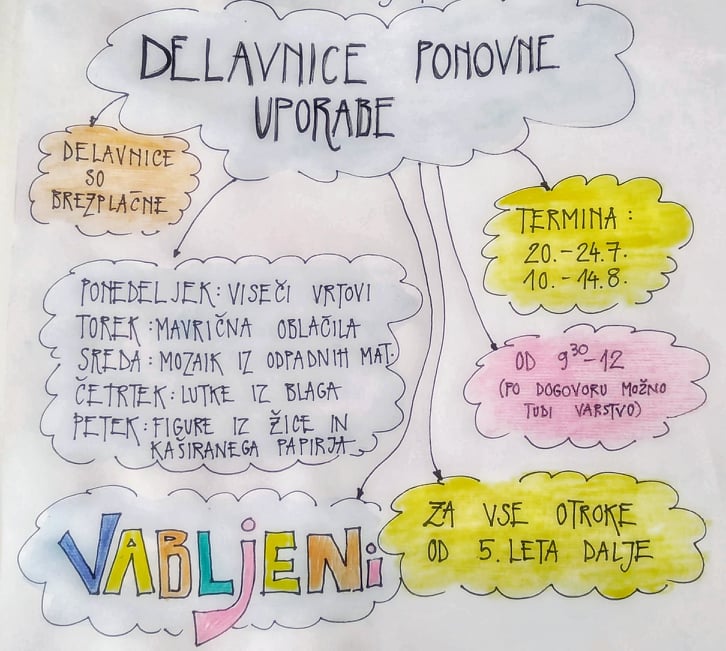 DELAVNICE PONOVNE
UPORABE
DELAVNICE
SO
BREZPLAČNE
TERMINA:
20.-24.7.
10.-14.8.
PONEDELJEK: VISEČI VRTOVI
TOREK: MAVRIČNA OBLAČILA
SREDA: MOZAIK IZ ODPADNIH MAT.
ČETRTEK: LUTKE IZ BLAGA
PETEK: FIGURE IZ ŽICE IN
KAŠIRANEGA PAPIRJA
OD 9³⁰-12
(PO DOGOVORU MOŽNO
TUDI VARSTVO)
VABLJENi
ZA VSE OTROKE
OD 5. LETA DALJE